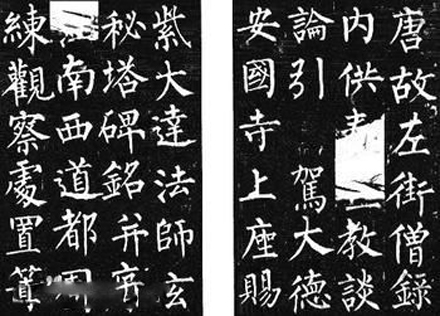 唐故左街僧錄
內供教談
論引駕大德
安國寺上座賜
紫大達法師玄
秘塔碑銘并序
南西道都
練觀察處置等